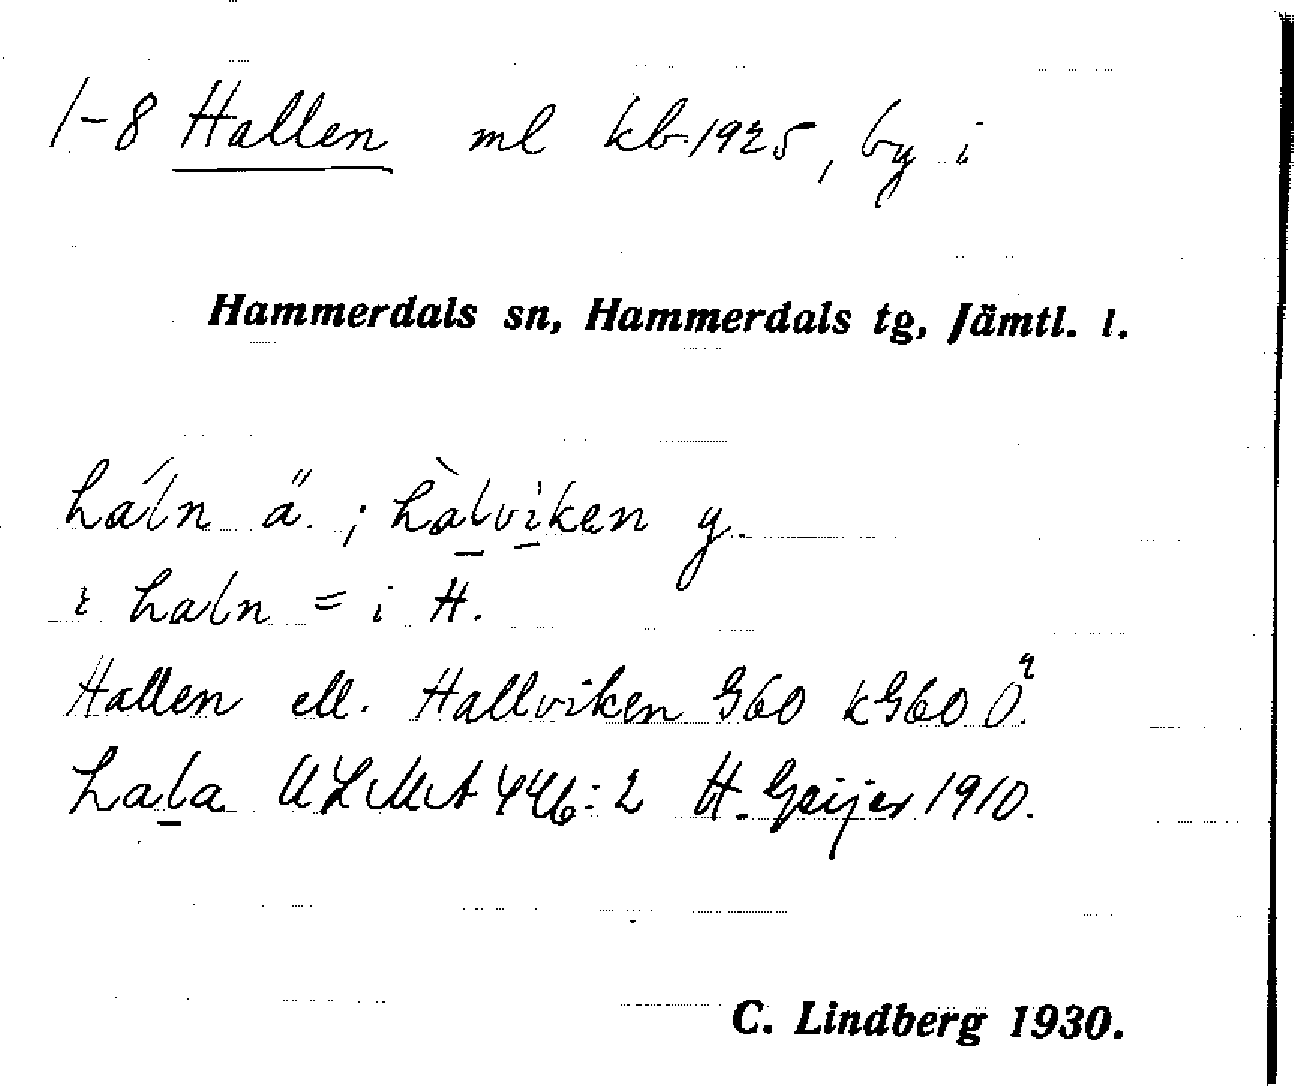 1-8 Hallen ml kb 1925, by i
Hammerdals sn, Hammerdals tg, Jämtl. l.
háln ä. ; hàlviken y.
haln = i H.
Hallen ell. Hallviken G60 kG60 Ö.
hala ULMA 446:2 H. Geijer 1910.
C. Lindberg 1930.